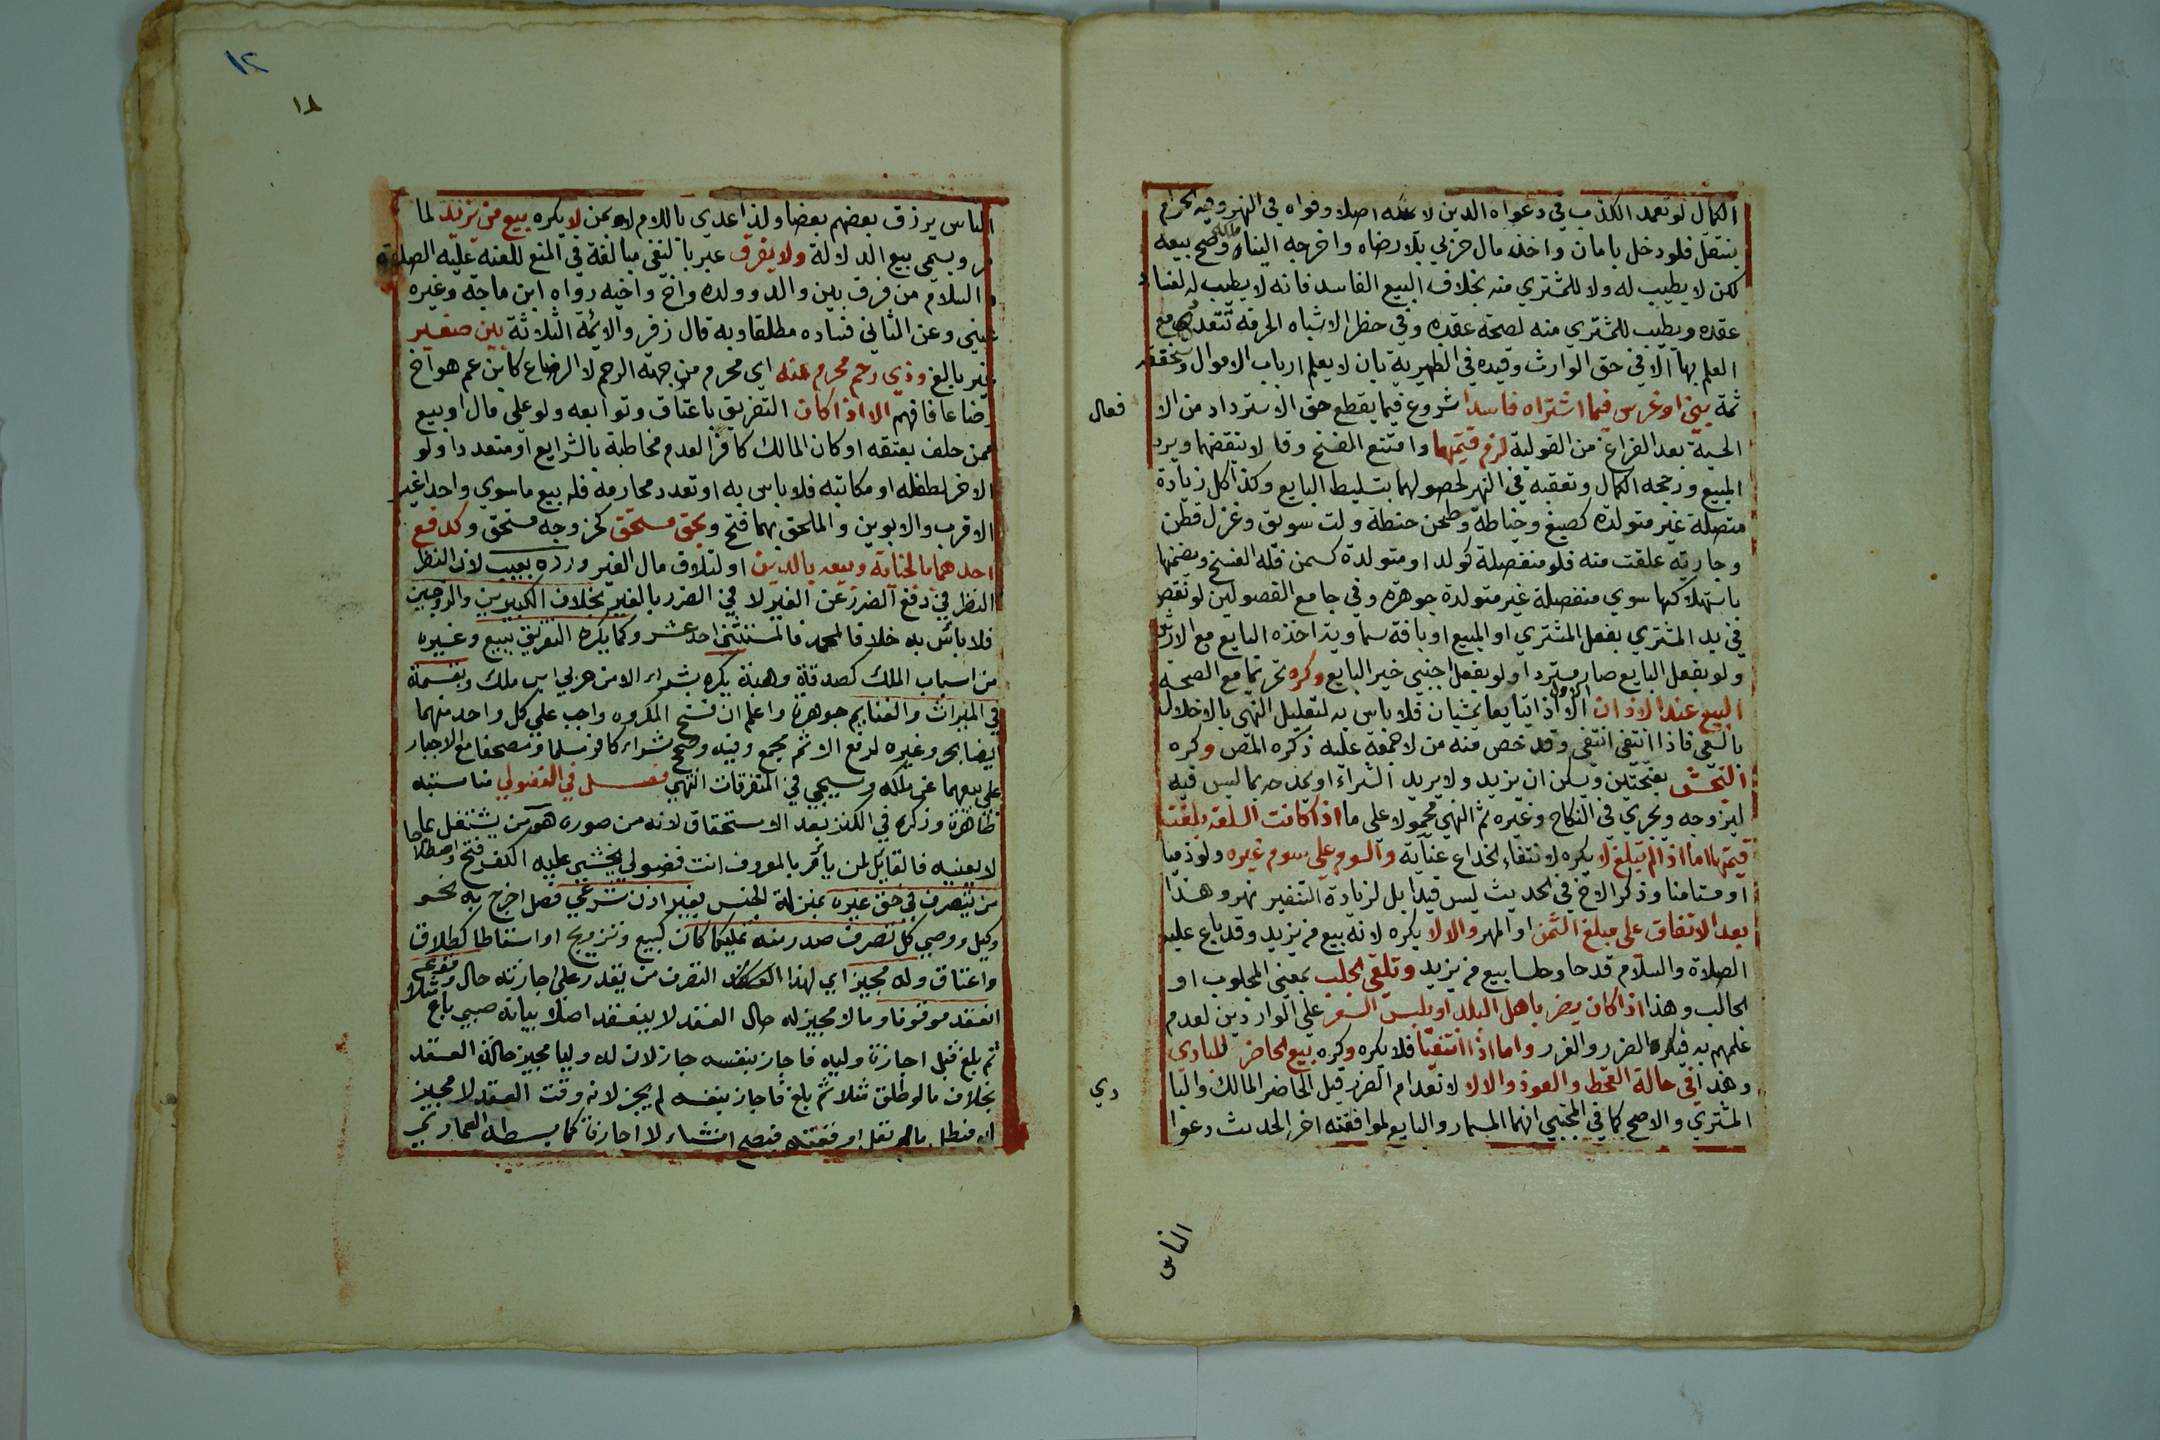 الكمال لو تعمد الكذب في دعواه الدين لا يملكه اصلا وقواه في النهر وفيه الحرام
ينتقل فلو دخل بامان واخذ مال حربي بلا رضاه واخرجه الينا ملكه وصح بيعه
لكن لا يطيب له ولا للمشتري منه بخلاف البيع الفاسد فانه لا يطيب له لفساد
عقده ويطيب للمشتري منه لصحة عقده وفي حظر الاشباه الحرمة تتعدد مع
العلم بها الا في حق الوارث وقيده في الظهيرية بان لا يعلم ارباب الاموال وسنحققه
ثمة بنى او غرس فيما اشتراه فاسدا شروع فيما يقطع حق الاسترداد من الا
فعال
الحسية بعد الفراغ من القولية لزم قيمتهما وامتنع الفسخ وقالا ينقضهما ويرد
المبيع ورجحه الكمال وتعقبه في النهر لحصولهما بتسليط البايع وكذا كل زيادة
متصلة غير متولدة كصبغ وخياطة وطحن حنطة ولت سويق وغزل قطن
وجارية علقت منه فلو منفصلة كولد او متولدة كسمن فله الفسخ ويضمنها
باستهلاكها سوي منفصلة غير متولدة جوهرة وفي جامع الفصولين لو نقص
في يد المشتري بفعل المشتري او المبيع او بافة سماوية اخذه البايع مع الارش
ولو بفعل البايع صار مستردا ولو بفعل اجنبي خير البايع وكره تحريما مع الصحة
البيع عند الاذان الاول الا اذا تبايعا يمشيان فلا باس به لتعليل النهي بالاخلال
بالسعي فاذا انتفى انتفى وقد خص منه من لا جمعة عليه ذكره المص وكره
النجش بفتحتين ويسكن ان يزيد ولا يريد الشراء او يمدحه بما ليس فيه
ليروجه ويجري في النكاح وغيره ثم النهي محمول على ما اذا كانت السلعة بلغت
قيمتها اما اذا لم تبلغ لا يكره لانتفاء الخداع عناية والسوم على سوم غيره ولو ذميا
او مستامنا وذكر الاخ في الحديث ليس قيدا بل لزيادة التنفير نهر وهذا
بعد الاتفاق على مبلغ الثمن او المهر والا لا يكره لانه بيع من يزيد وقد باع عليه
الصلاة والسلام قدحا وحلسا بيع من يزيد وتلقي الجلب بمعنى المجلوب او
الجالب وهذا اذا كان يضر باهل البلد او يلبس السعر على الواردين لعدم
علمهم به فيكره الضرر والغرر واما اذا انتفيا فلا يكره وكره بيع الحاضر للبادي
وهذا في حالة القحط والعوز والا لا لانعدام الضرر قيل الحاضر المالك والبا
دي
المشتري والاصح كما في المجتبى انهما السمسار والبايع لموافقته اخر الحديث دعوا
الناس
١٢
١٨
الناس يرزق بعضهم بعضا ولذا عدي باللام لا بمن لا يكره بيع من يزيد لما
مر ويسمى بيع الدلالة ولا يفرق عبر بالنفي مبالغة في المنع للعنه عليه الصلاة
والسلام من فرق بين والد وولده واخ واخيه رواه ابن ماجة وغيره
عيني وعن الثاني فساده مطلقا وبه قال زفر والائمة الثلاثة بين صغير
غير بالغ وذي رحم محرم منه اي محرم من جهة الرحم لا الرضاع كابن عم هو اخ
رضاعا فافهم الا اذا كان التفريق باعتاق وتوابعه ولو على مال او بيع
ممن حلف بعتقه او كان المالك كافرا لعدم مخاطبة بالشرايع او متعددا ولو
الاخر لطفله او مكاتبه فلا باس به او تعدد محارمه فله بيع ما سوي واحد غير
الاقرب والابوين والملحق بهما فتح وبحق مستحق كخروجه مستحق وكدفع
احدهما بالجناية وبيعه بالدين او لتلاف مال الغير ورده بعيب لان النظر
النظر في دفع الضرر عن الغير لا في الضرر بالغير بخلاف الكبيرين والزوجين
فلا باس به خلافا لمحمد فالمستثنى احد عشر وكما يكره التفريق ببيع وغيره
من اسباب الملك كصدقة وهبة يكره بشراء الا من حربي ابن ملك وبقسمة
في الميراث والغنايم جوهرة واعلم ان فسخ المكروه واجب على كل واحد منهما
ايضا بحر وغيره لرفع الاثم مجمع وفيه وصح شراء كافر مسلما ومصحفا مع الاجبار
على بيعهما عن ملكه وسيجي في المتفرقات انتهى فصل في الفضولي مناسبته
ظاهرة وذكره في الكنز بعد الاستحقاق لانه من صوره هو من يشتغل بما
لا يعنيه فالقايل لمن يامر بالمعروف انت فضولي يخشى عليه الكفر فتح واصطلاحا
من يتصرف في حق غيره بمنزلة الجنس بغير اذن شرعي فصل اخرج به نحو
وكيل ووصي كل تصرف صدر منه تمليكا كان كبيع وتزويج او اسقاطا كطلاق
واعتاق وله مجيز اي لهذا التصرف من يقدر على اجازته حال وقوعه
انعقد موقوفا وما لا مجيز له حال العقد لا ينعقد اصلا بيانه صبي باع مثلا
ثم بلغ قبل اجازة وليه فاجاز بنفسه جاز لان له وليا مجيز حالة العقد
بخلاف ما لو طلق مثلا ثم بلغ فاجاز بنفسه لم يجز لانه وقت العقد لا مجيز
له فيبطل ما لم يقل اوقعته فيصح انشاء لا اجازة كما بسطه العمادي